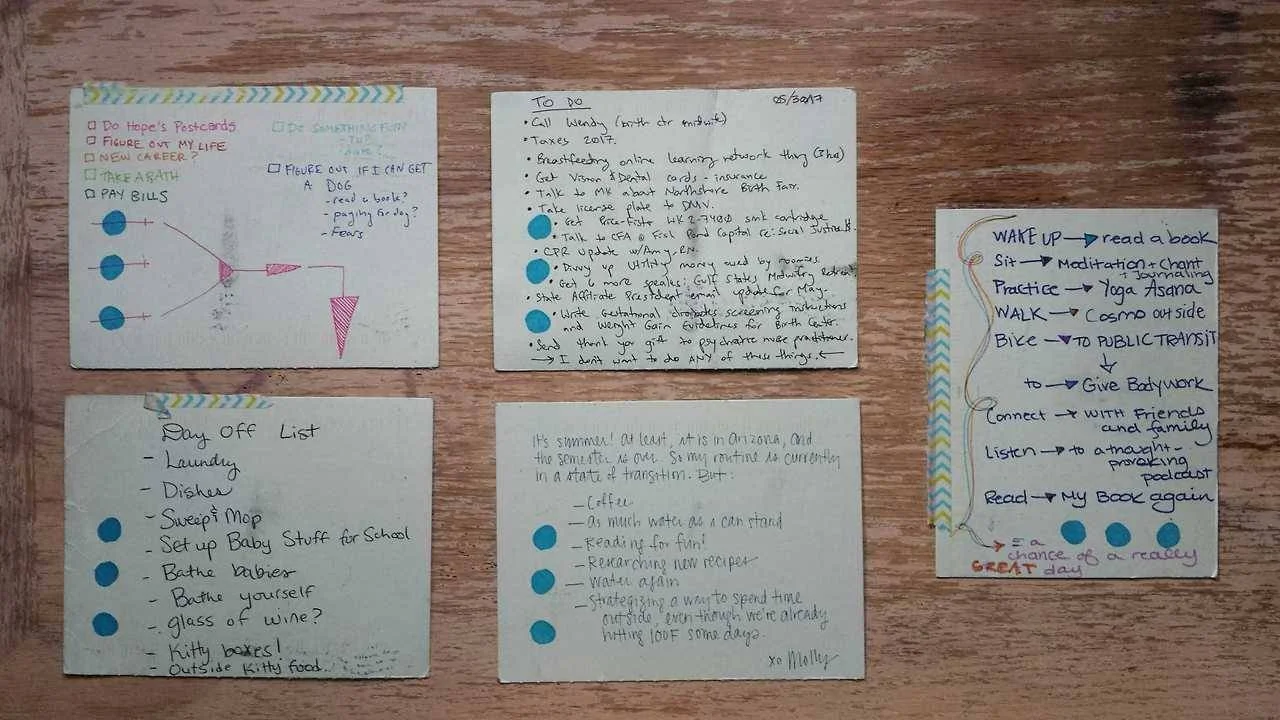 DO HOPE'S POSTCARDS
FIGURE OUT MY LIFE
NEW CAREER?
TAKE A BATH
PAY BILLS
DO SOMETHING FUN?
FIGURE OUT IF I CAN GET
A DOG
- read a book?
- paying for dog?
- Fears
TO DO 05/30/17
• Call Wendy (birth ctr midwife)
• Taxes 2017.
• Breastfeeding online learning network thing
• Get Vision & Dental cards - insurance
• Talk to MK about Northshore Birth Fair.
• Take license plate to DMV.
• Get cartridge
• Talk to CFA @ Capital re: Social Justice
• CPR Update w/Amy, RN.
• Divvy up Utility money owed by roomies
• Get 6 more speakers: Gulf States Midwifery Retreat
• State Affiliate President email update for May.
• Write Gestational diabetes screening instructions
and Weight Gain Guidelines for Birth Center.
• Send thank you gift to psychiatric nurse practitioner.
→ I don't want to do ANY of these things. ←
WAKE UP → read a book
Sit → Meditation + Chant
+ Journaling
Practice → Yoga Asana
WALK → Cosmo outside
Bike → TO PUBLIC TRANSIT
↓
to → Give Bodywork
Connect → WITH Friends
and family
Listen → to a thought-
provoking
podcast
Read → My Book again
= a
chance of a really
GREAT day
Day Off List
- Laundry
- Dishes
- Sweep & Mop
- Set up Baby Stuff for School
- Bathe babies
- Bathe yourself
- glass of wine?
- Kitty boxes!
- Outside Kitty food
It's summer! At least, it is in Arizona, and
the semester is over. So my routine is currently
in a state of transition. But:
- Coffee
- as much water as I can stand
- Reading for fun!
- Researching new recipes
- Water again
- Strategizing a way to spend time
outside, even though we're already
hitting 100F some days.
xo Molly